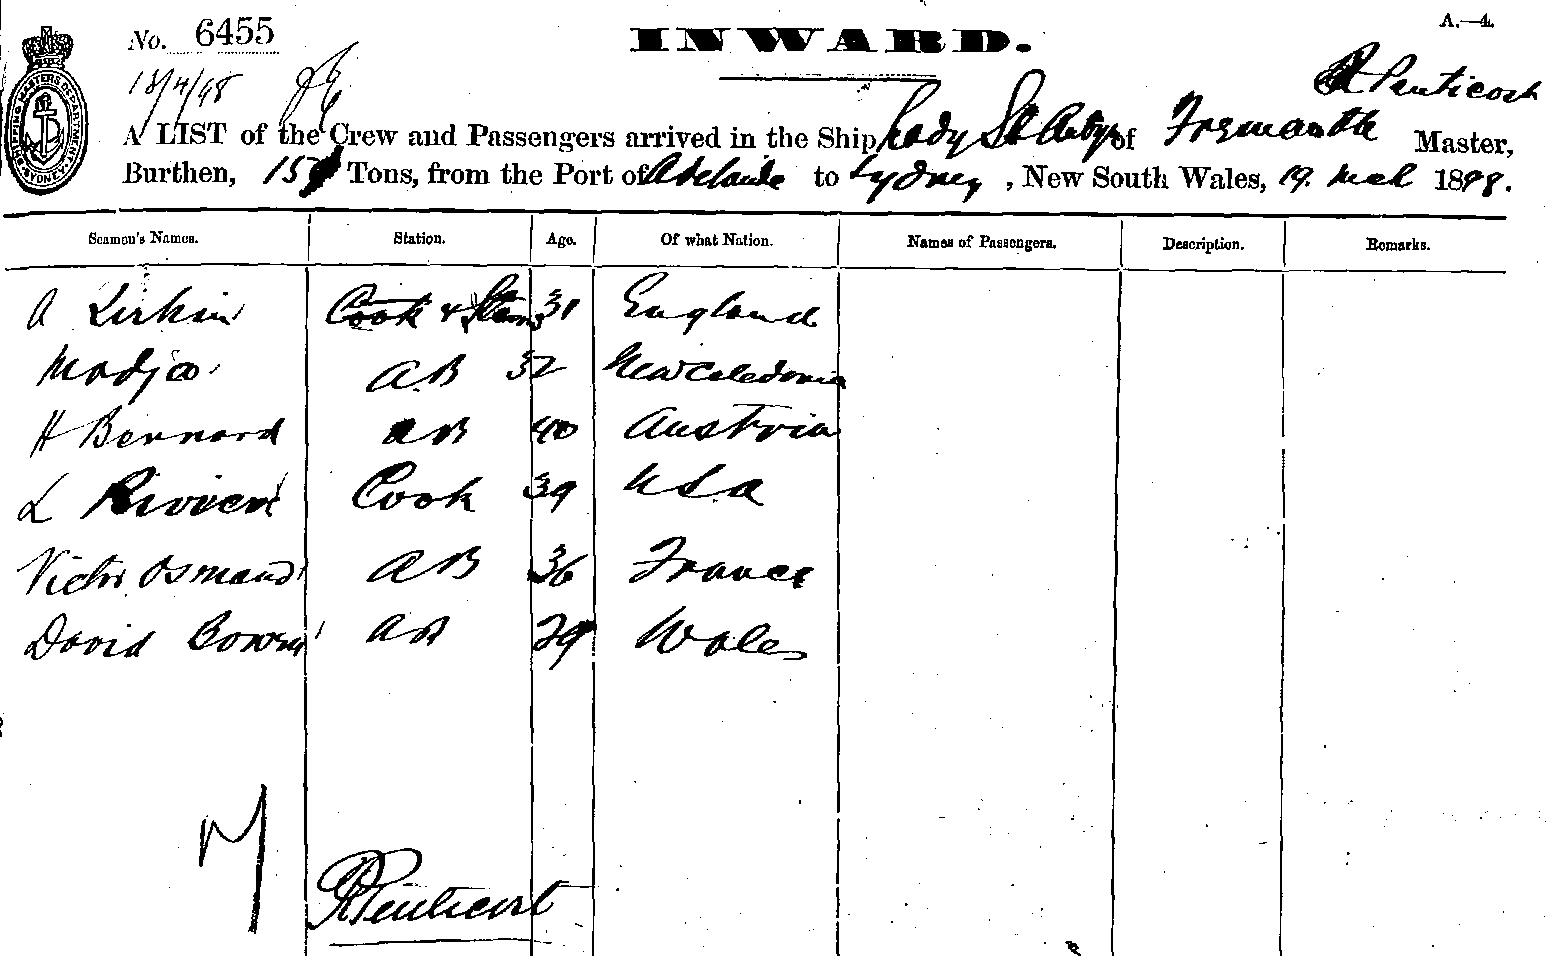 A.—4.
No. 6455
INWARD.
13/4/98
R Penticost
A LIST of the Crew and Passengers arrived in the Ship Lady St of Fremantle Master,
Burthen, 15 Tons, from the Port of Adelaide to Sydney, New South Wales, 19. March 1898.
SHIPPING MASTERS DEPARTMENT SYDNEY
Seamen's Names. Station. Age. Of what Nation. Names of Passengers. Description. Remarks.
A Cook & 31 England
Madjoo AB 32 New Caledonia
H Bernard AB 40 Austria
L Cook 39 USA
Victor Osmand AB 36 France
David Bowen AB 29 Wales
R Penticost